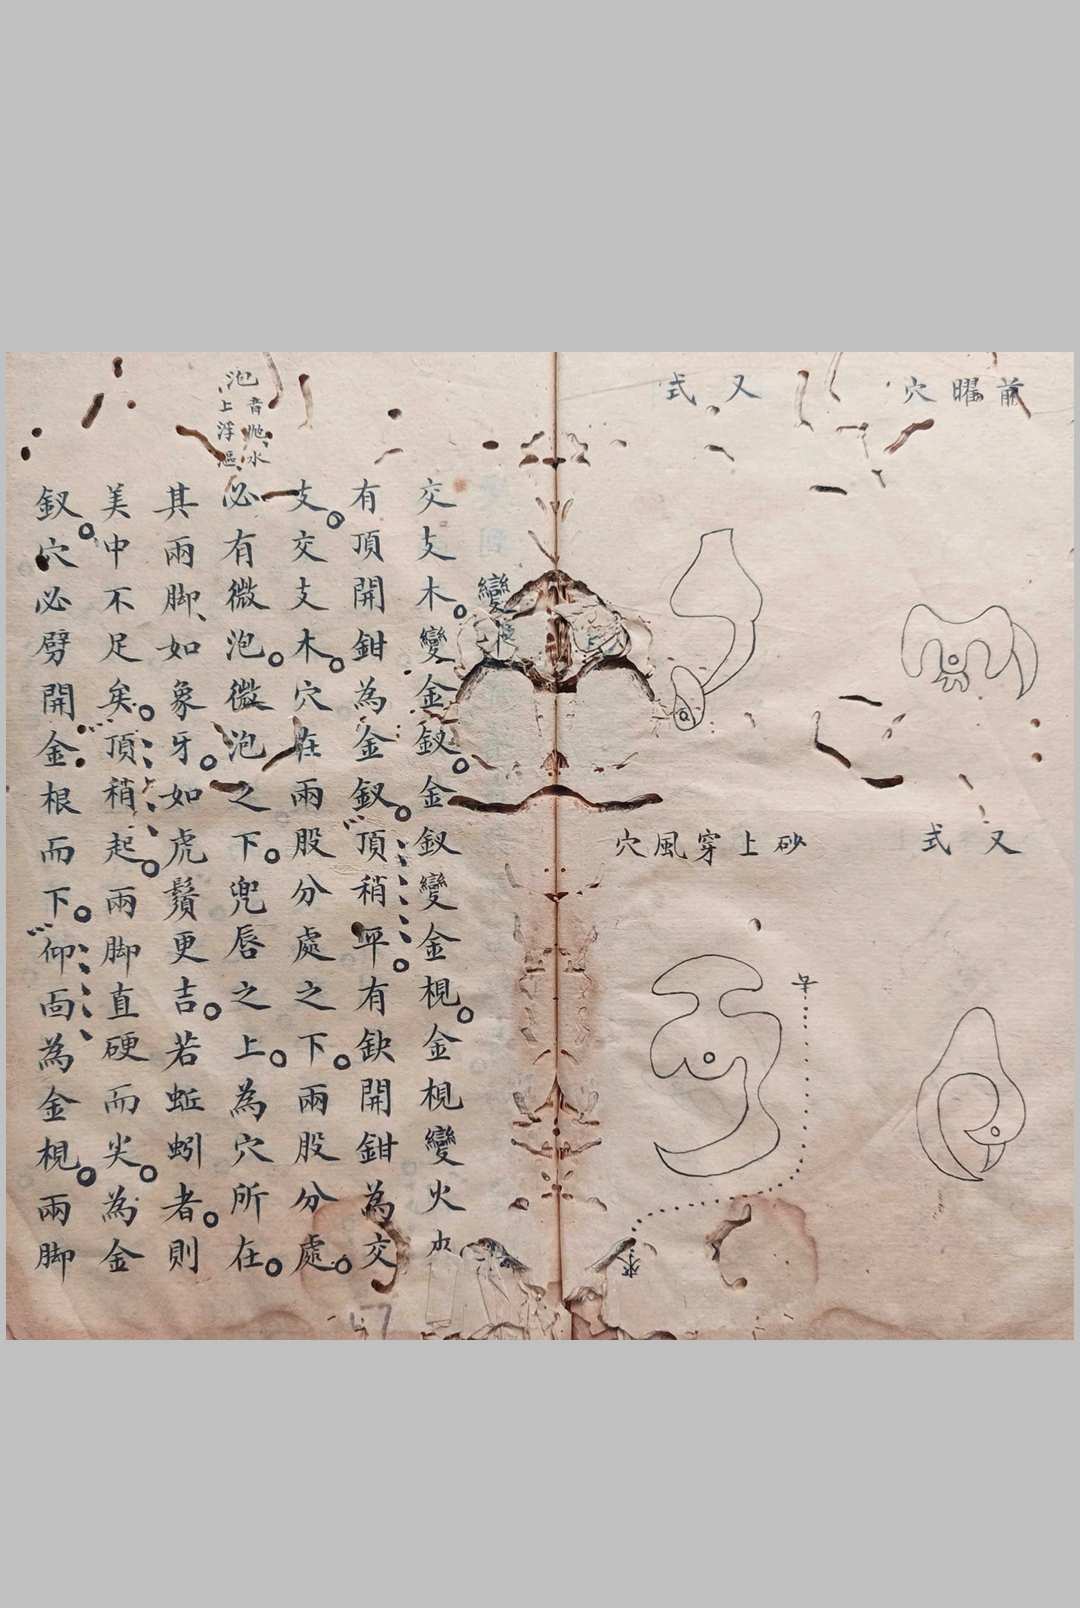 前曜穴
又式
又式
砂上穿風穴
來
變
交支木。變金釵。金釵變金梘。金梘變火
有頂開鉗為金釵。頂稍平。有缺開鉗為交
支。交支木。穴在兩股分處之下。兩股分處。
必有微泡。微泡之下。兜唇之上。為穴所在。
其兩脚、如象牙。如虎鬚更吉。若蚯蚓者。則
美中不足矣。頂稍起。兩脚直硬而尖。為金
釵。穴必劈開金根而下。仰面為金梘。兩脚
泡者
水
上浮漚